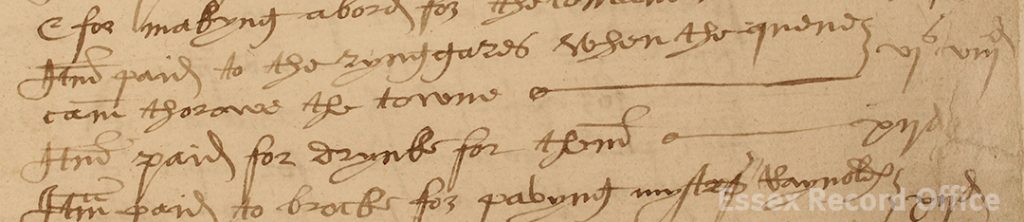 & for makyng a bord for the
Itm paid to the rynggares when the quene vjs viijd
cam thorowe the towne
Itm paid for drynke for them xijd
Itm paid to brocke for pavyng mystrs Raynoldes
Essex Record Office